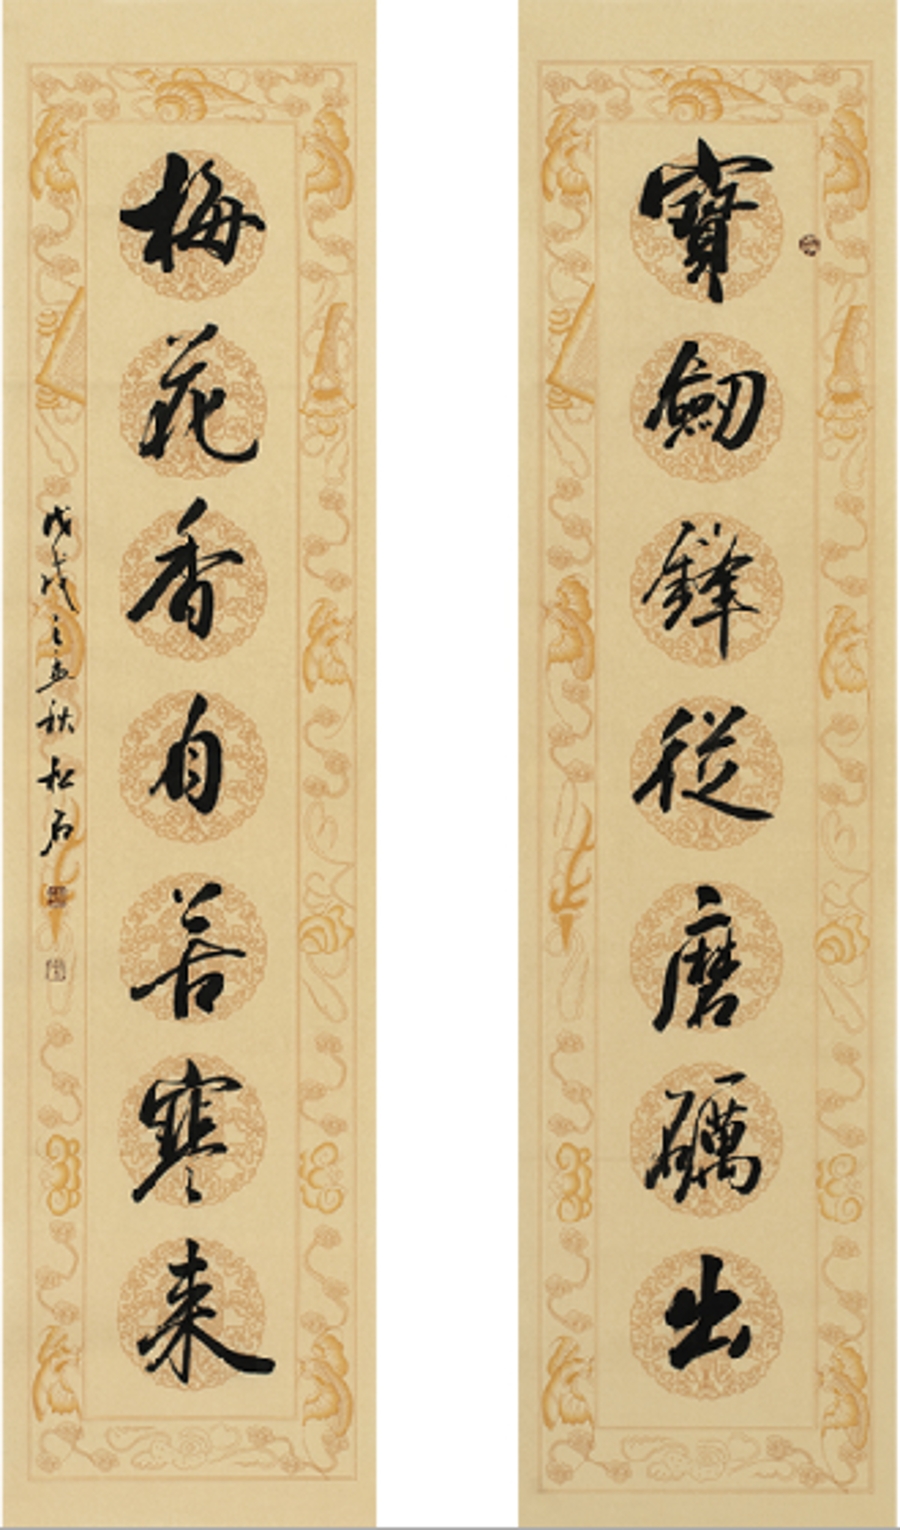 寶劔鋒從磨礪出
梅花香自苦寒来
戊戌之孟秋松石